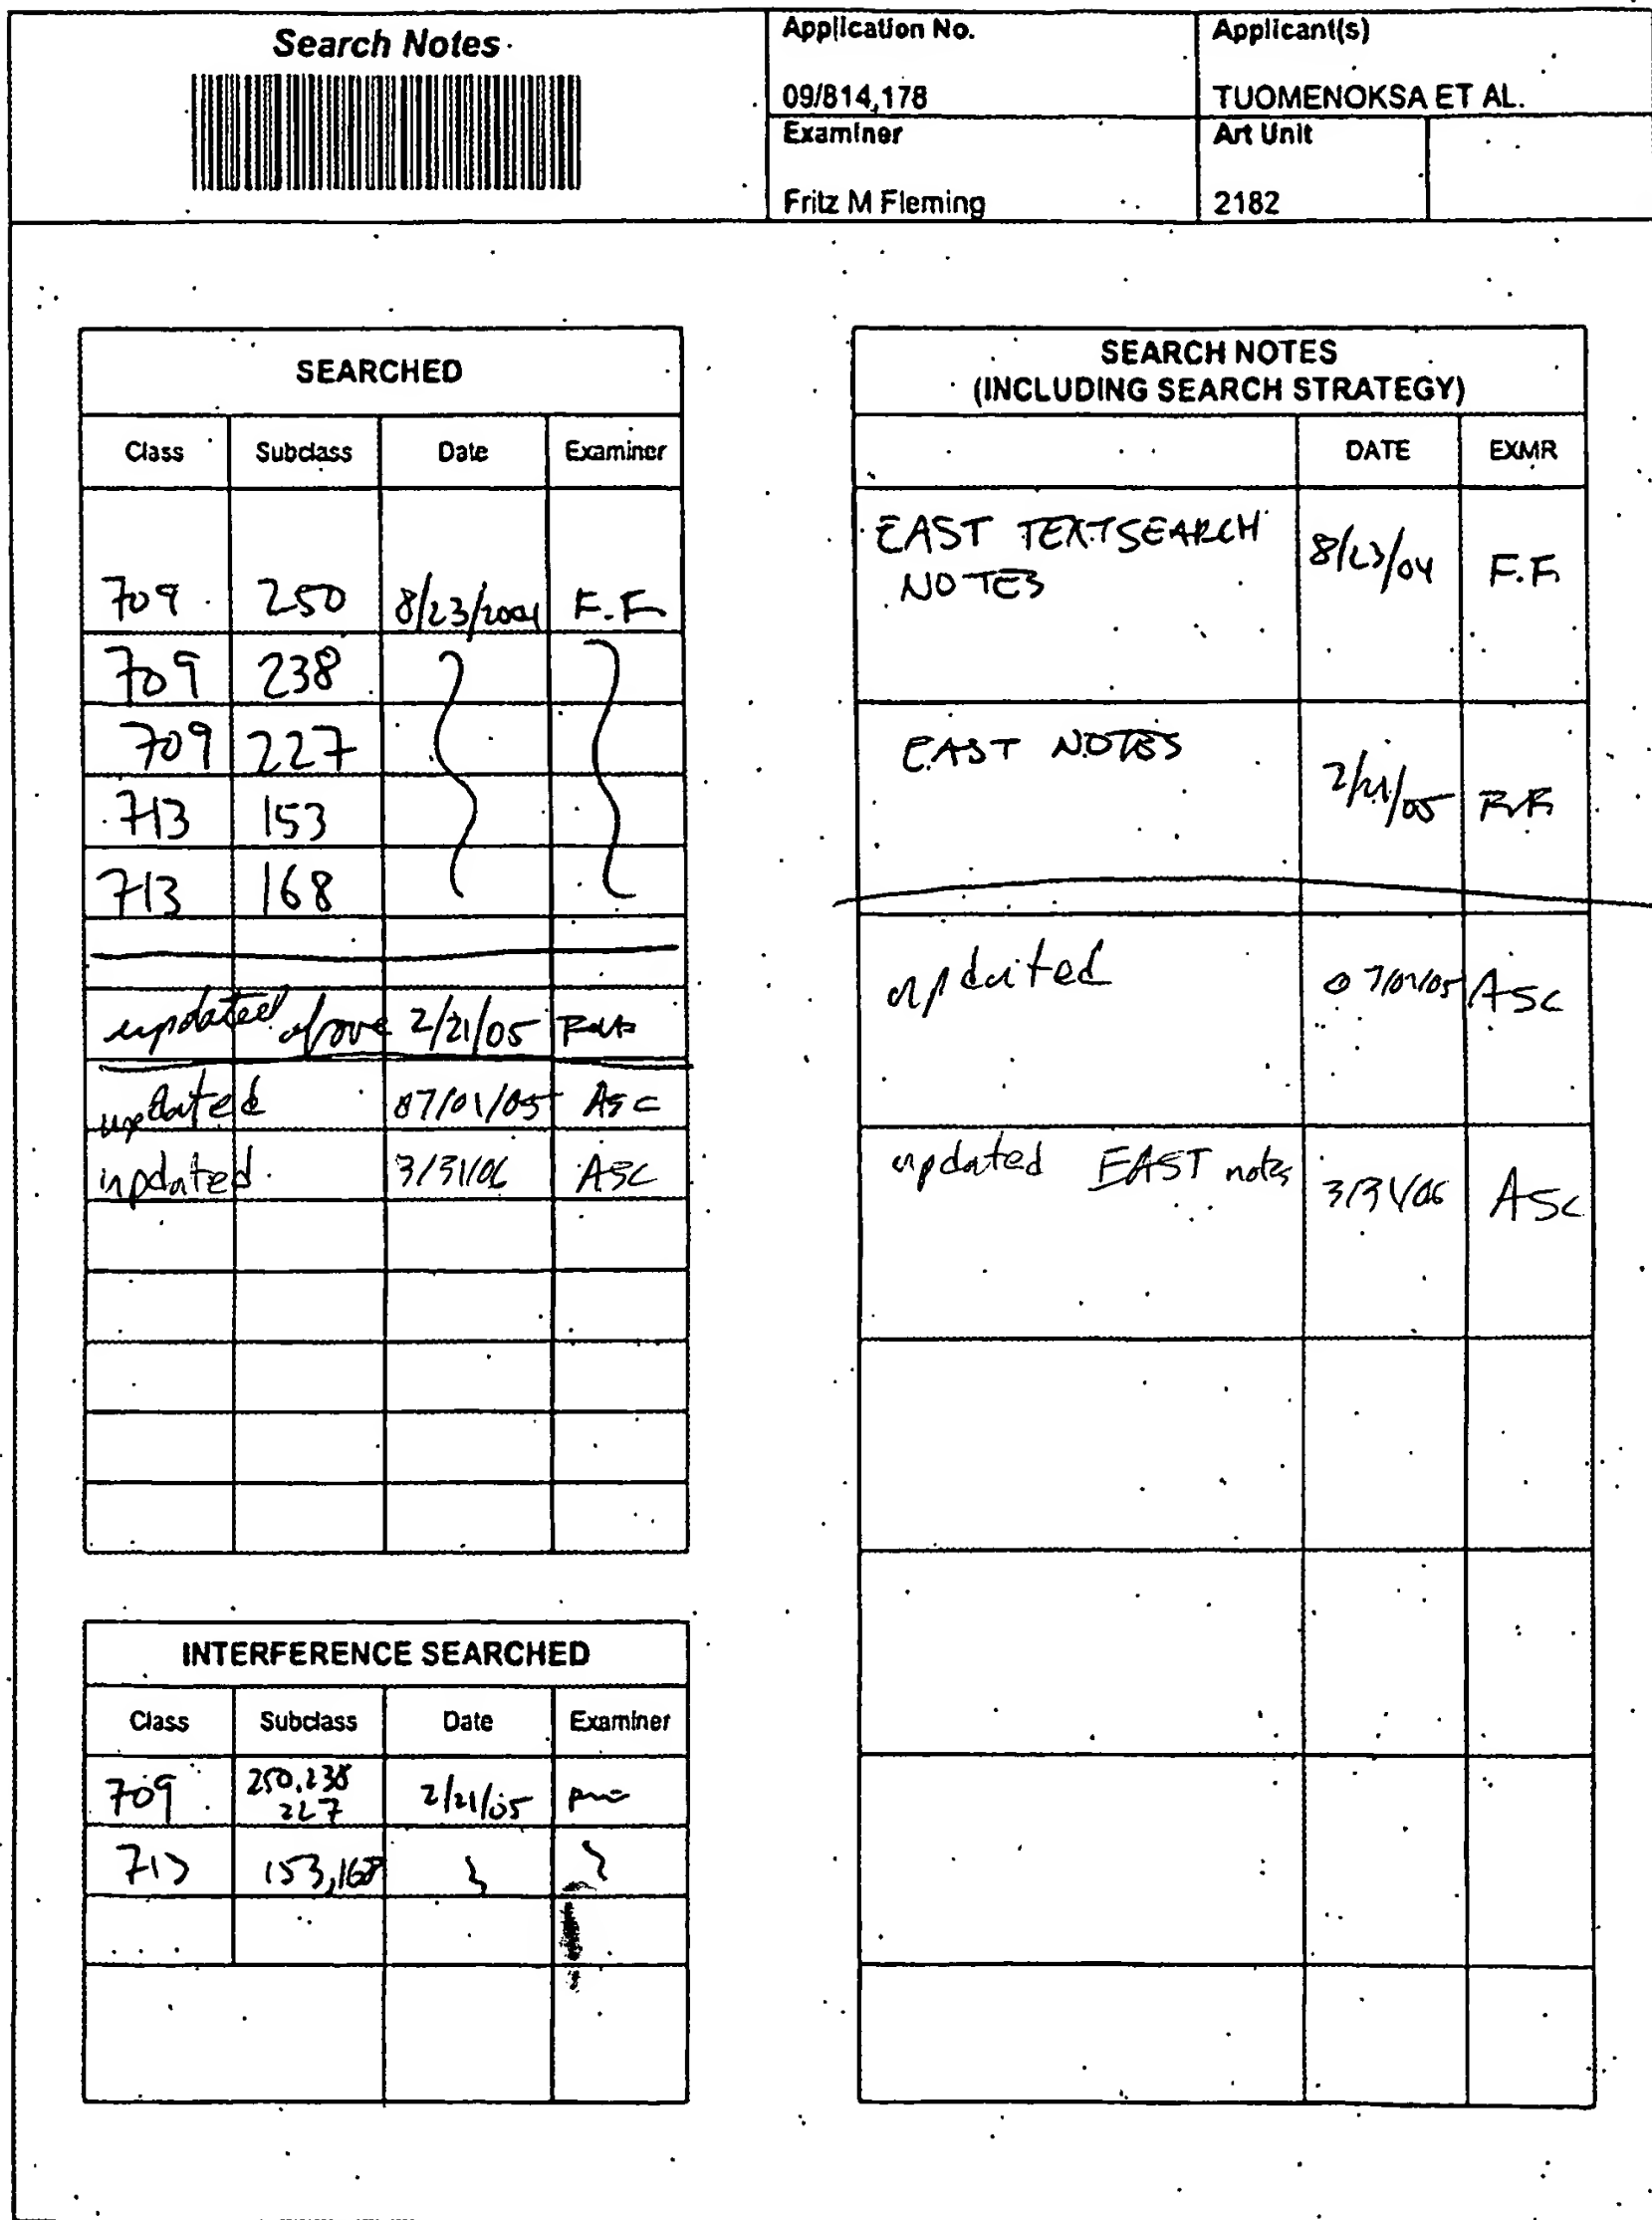 Search Notes
Application No.
09/814,178
Applicant(s)
TUOMENOKSA ET AL.
Examiner
Fritz M Fleming
Art Unit
2182
SEARCHED
Class Subclass Date Examiner
709 250 8/23/2004 F.F.
709 238
709 227
713 153
713 168
updated above 2/21/05
updated 07/01/05 ASC
updated 3/31/06 ASC
INTERFERENCE SEARCHED
Class Subclass Date Examiner
709 250,238 227 2/21/05
713 153,168
SEARCH NOTES
(INCLUDING SEARCH STRATEGY)
DATE EXMR
EAST TEXTSEARCH
NOTES 8/23/04 F.F.
EAST NOTES 2/21/05
updated 07/01/05 ASC
updated EAST notes 3/31/06 ASC